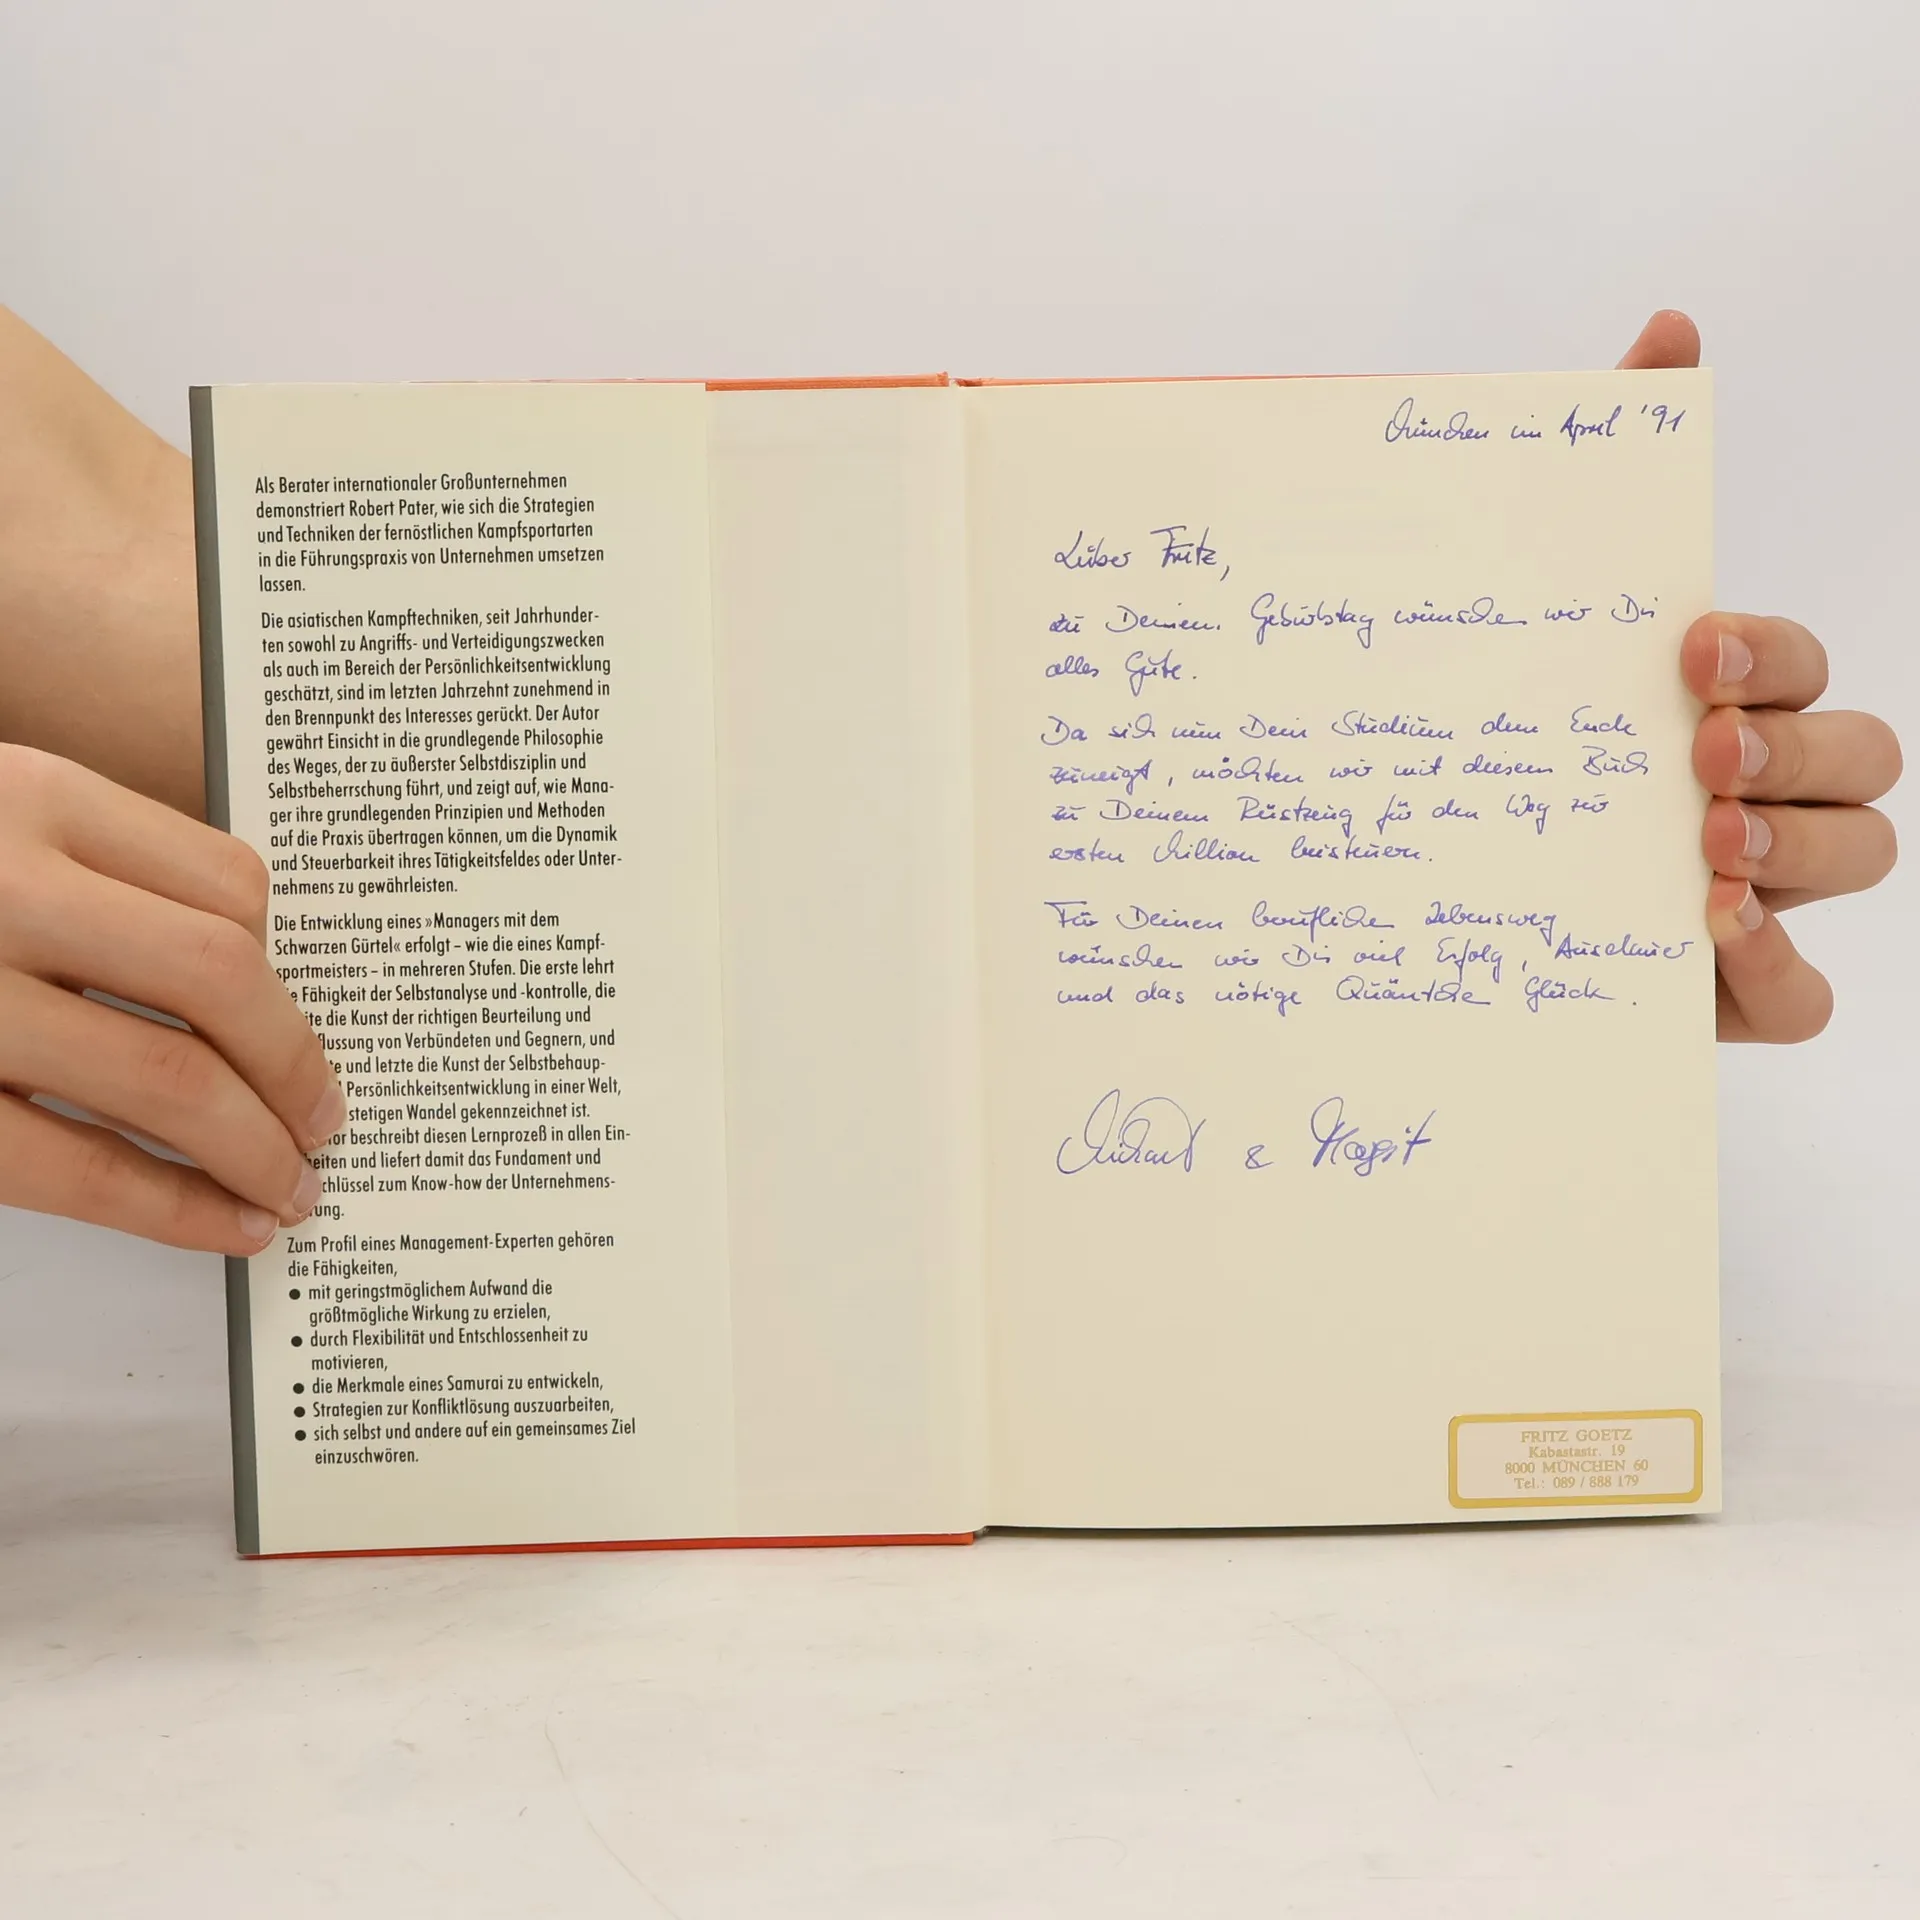 Als Berater internationaler Großunternehmen
demonstriert Robert Pater, wie sich die Strategien
und Techniken der fernöstlichen Kampfsportarten
in die Führungspraxis von Unternehmen umsetzen
lassen.
Die asiatischen Kampftechniken, seit Jahrhunder-
ten sowohl zu Angriffs- und Verteidigungszwecken
als auch im Bereich der Persönlichkeitsentwicklung
geschätzt, sind im letzten Jahrzehnt zunehmend in
den Brennpunkt des Interesses gerückt. Der Autor
gewährt Einsicht in die grundlegende Philosophie
des Weges, der zu äußerster Selbstdisziplin und
Selbstbeherrschung führt, und zeigt auf, wie Mana-
ger ihre grundlegenden Prinzipien und Methoden
auf die Praxis übertragen können, um die Dynamik
und Steuerbarkeit ihres Tätigkeitsfeldes oder Unter-
nehmens zu gewährleisten.
Die Entwicklung eines »Managers mit dem
Schwarzen Gürtel« erfolgt – wie die eines Kampf-
sportmeisters – in mehreren Stufen. Die erste lehrt
e Fähigkeit der Selbstanalyse und -kontrolle, die
ite die Kunst der richtigen Beurteilung und
flussung von Verbündeten und Gegnern, und
te und letzte die Kunst der Selbstbehaup-
Persönlichkeitsentwicklung in einer Welt,
stetigen Wandel gekennzeichnet ist.
or beschreibt diesen Lernprozeß in allen Ein-
heiten und liefert damit das Fundament und
chlüssel zum Know-how der Unternehmens-
rung.
Zum Profil eines Management-Experten gehören
die Fähigkeiten,
● mit geringstmöglichem Aufwand die
größtmögliche Wirkung zu erzielen,
● durch Flexibilität und Entschlossenheit zu
motivieren,
● die Merkmale eines Samurai zu entwickeln,
● Strategien zur Konfliktlösung auszuarbeiten,
● sich selbst und andere auf ein gemeinsames Ziel
einzuschwören.
München im April '91
Lieber Fritz,
zu Deinem Geburtstag wünschen wir Dir
alles Gute.
Da sich nun Dein Studium dem Ende
zuneigt, möchten wir mit diesem Buch
zu Deinem Rüstzeug für den Weg zur
ersten Million beisteuern.
Für Deinen beruflichen Lebensweg
wünschen wir Dir viel Erfolg, Ausdauer
und das nötige Quäntchen Glück.
Michael & Margit
FRITZ GOETZ
Kabastastr. 19
8000 MÜNCHEN 60
Tel.: 089 / 888 179